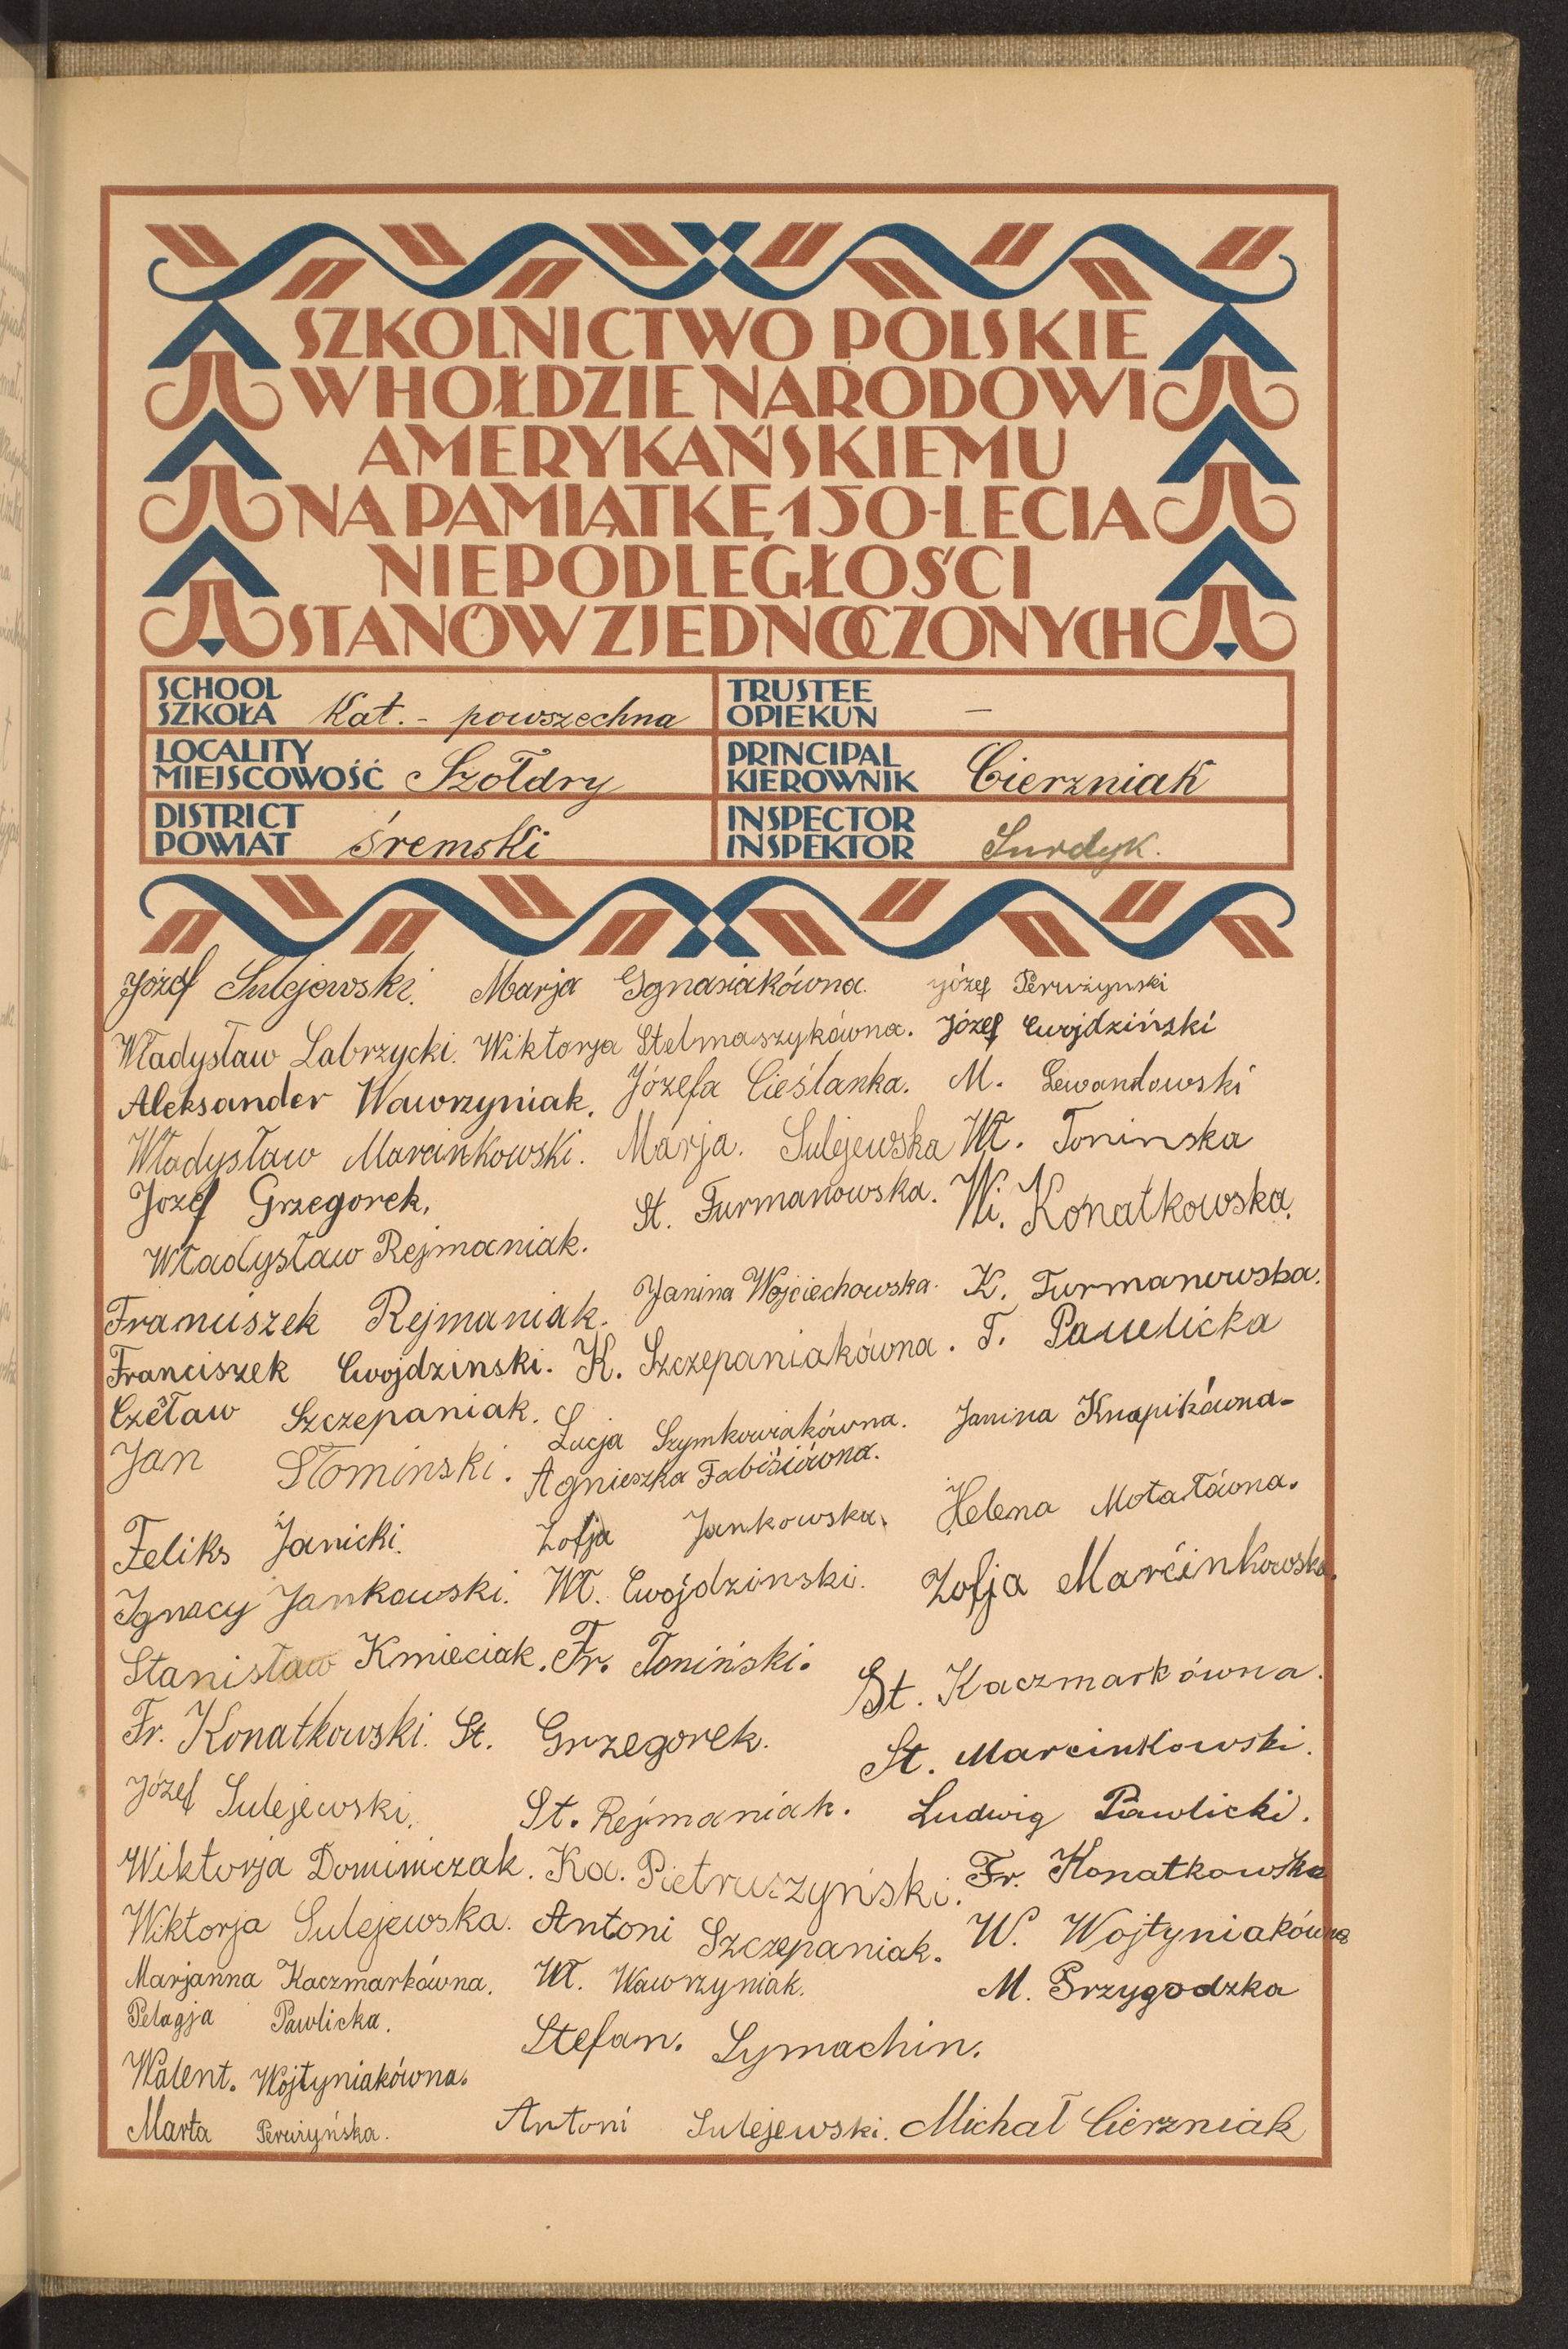 SZKOLNICTWO POLSKIE
W HOŁDZIE NARODOWI
AMERYKAŃSKIEMU
NA PAMIĄTKĘ 150-LECIA
NIEPODLEGŁOŚCI
STANÓW ZJEDNOCZONYCH
SCHOOL
SZKOŁA Kat. - powszechna
TRUSTEE
OPIEKUN —
LOCALITY
MIEJSCOWOŚĆ Szołdry
PRINCIPAL
KIEROWNIK Cierzniak
DISTRICT
POWIAT śremski
INSPECTOR
INSPEKTOR Surdyk.
Józef Sulejewski. Marja Ignasiakówna. Józef Perużynski
Władysław Labrzycki. Wiktorja Stelmaszykówna. Józef Cwojdziński
Aleksander Wawrzyniak. Józefa Cieślanka. M. Lewandowski
Władysław Marcinkowski. Marja. Sulejewska Wł. Toninska
Józef Grzegorek. St. Furmanowska. Wi. Konatkowska.
Władysław Rejmaniak. Janina Wojciechowska. K. Furmanowska.
Franciszek Rejmaniak. K. Szczepaniakówna. T. Pawlicka
Franciszek Cwojdzinski. Lucja Szymkowiakówna. Janina Knapikówna-
Czesław Szczepaniak. Agnieszka Fabisiówna.
Jan Słominski. Zofja Jankowska. Helena Motałówna.
Feliks Janicki. Wł. Cwojdzinski. Zofja Marcinkowska.
Ignacy Jankowski. Fr. Toniński. St. Kaczmarkówna.
Stanisław Kmieciak. St. Grzegorek. St. Marcinkowski.
Fr. Konatkowski. St. Rejmaniak. Ludwig Pawlicki.
Józef Sulejewski. Ka. Pietruszyński. Fr. Konatkowska
Wiktorja Dominiczak. Antoni Szczepaniak. W. Wojtyniakówna
Wiktorja Sulejewska. Wł. Wawrzyniak. M. Przygodzka
Marjanna Kaczmarkówna. Stefan. Symachin.
Pelagja Pawlicka.
Walent. Wojtyniakówna.
Marta Perużyńska. Antoni Sulejewski. Michał Cierzniak